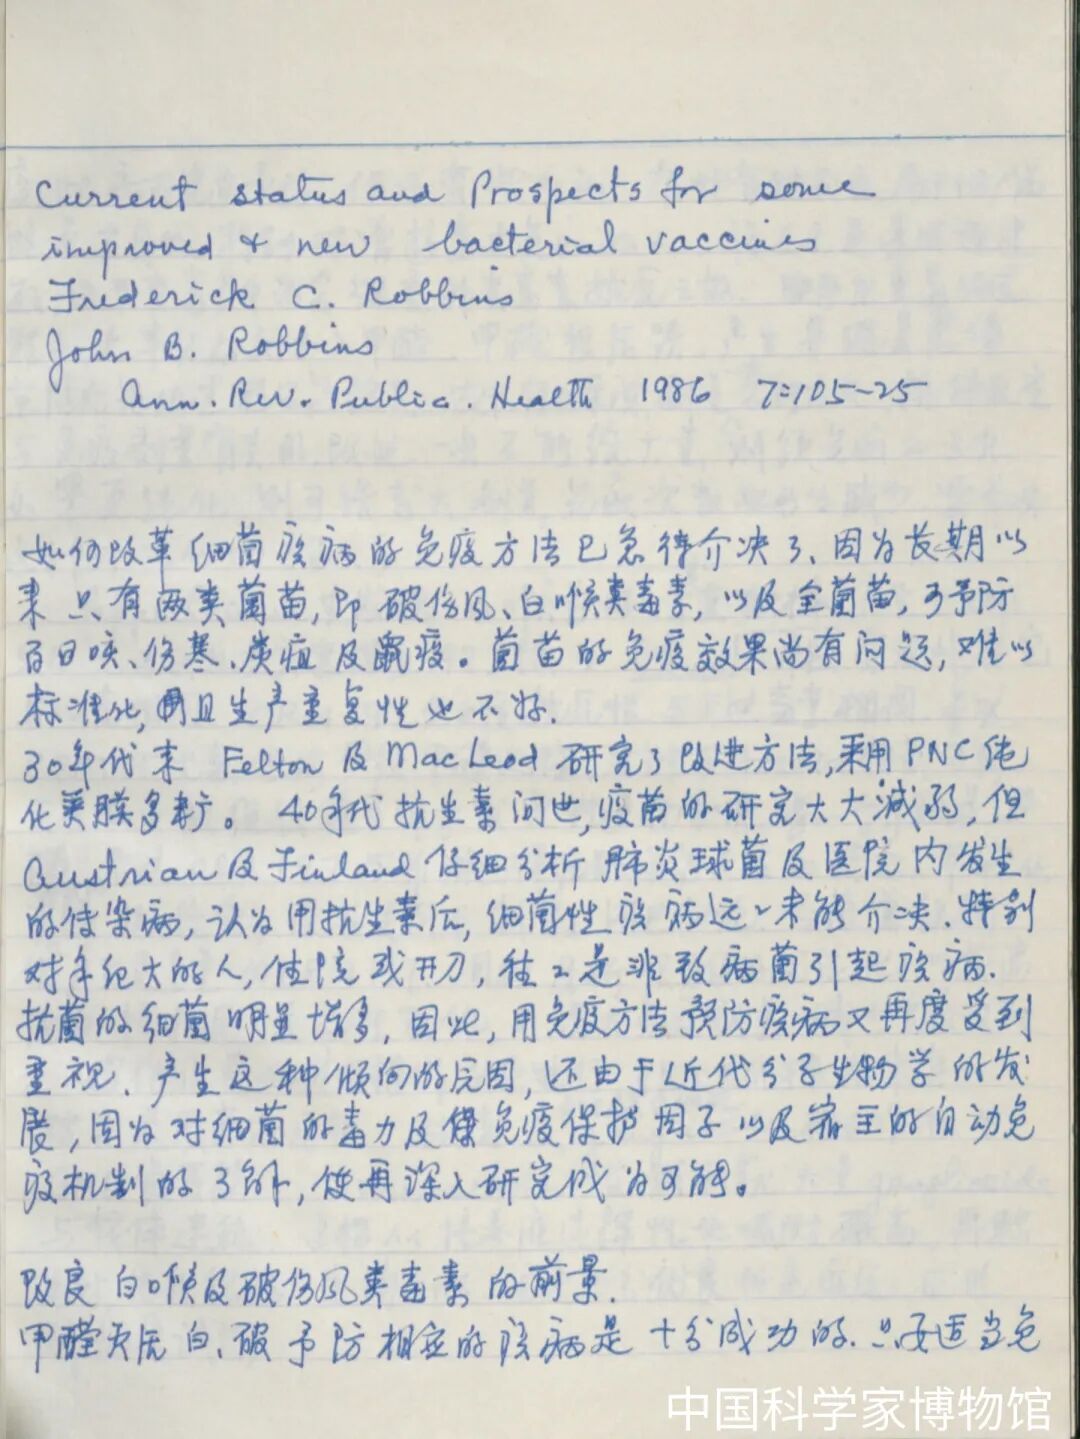 Current status and Prospects for some
improved & new bacterial vaccines
Frederick C. Robbins
John B. Robbins
Ann. Rev. Public. Health 1986 7:105-25
如何改革细菌疾病的免疫方法已急待介决了、因为长期以
来只有两类菌苗,即破伤风、白喉类毒素,以及全菌苗,可予防
百日咳、伤寒、炭疽及鼠疫。菌苗的免疫效果尚有问题,难以
标准化,而且生产重复性也不好.
30年代末 Felton 及 MacLeod 研究了改进方法,采用PNC纯
化荚膜多糖。40年代抗生素问世,疫苗的研究大大减弱,但
Austrian 及 Finland 仔细分析肺炎球菌及医院内发生
的传染病,认为用抗生素后,细菌性疾病远远未能介决.特别
对年纪大的人,住院或开刀,往往是非致病菌引起疾病.
抗菌的细菌明显增多,因此,用免疫方法预防疾病又再度受到
重视.产生这种倾向的原因,还由于近代分子生物学的发
展,因为对细菌的毒力及免疫保护因子以及宿主的自动免
疫机制的了解,使再深入研究成为可能。
改良白喉及破伤风类毒素的前景.
甲醛灭活白、破予防相应的疾病是十分成功的.只要适当免
中国科学家博物馆